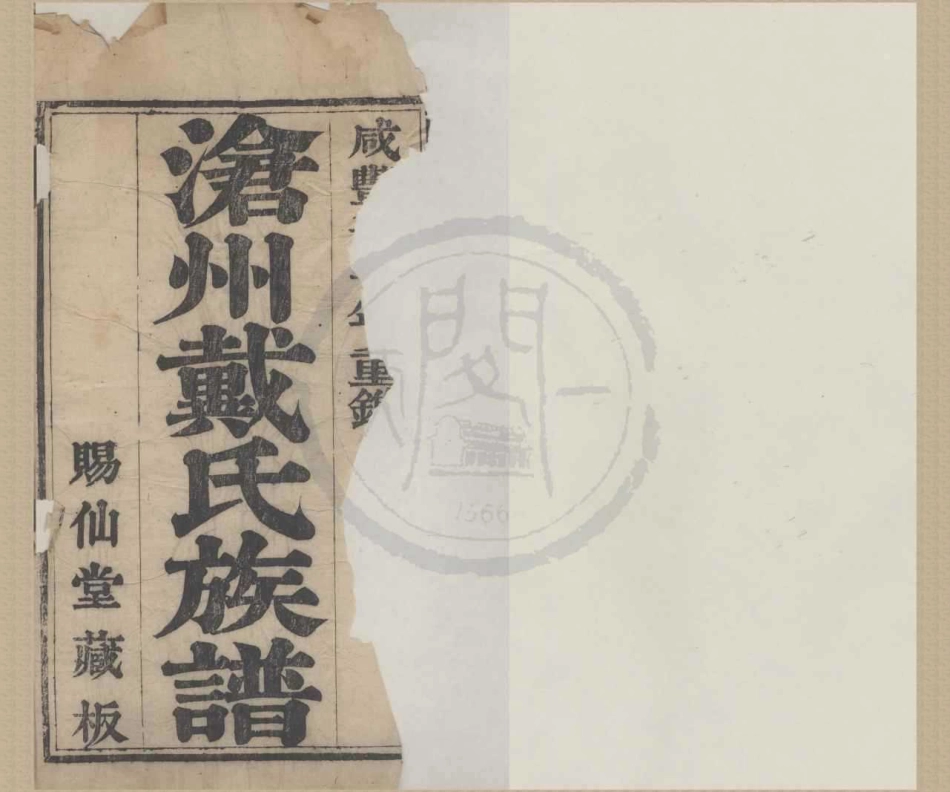 咸豐年重鐫
滄州戴氏族譜
賜仙堂藏板
天一閣
1566